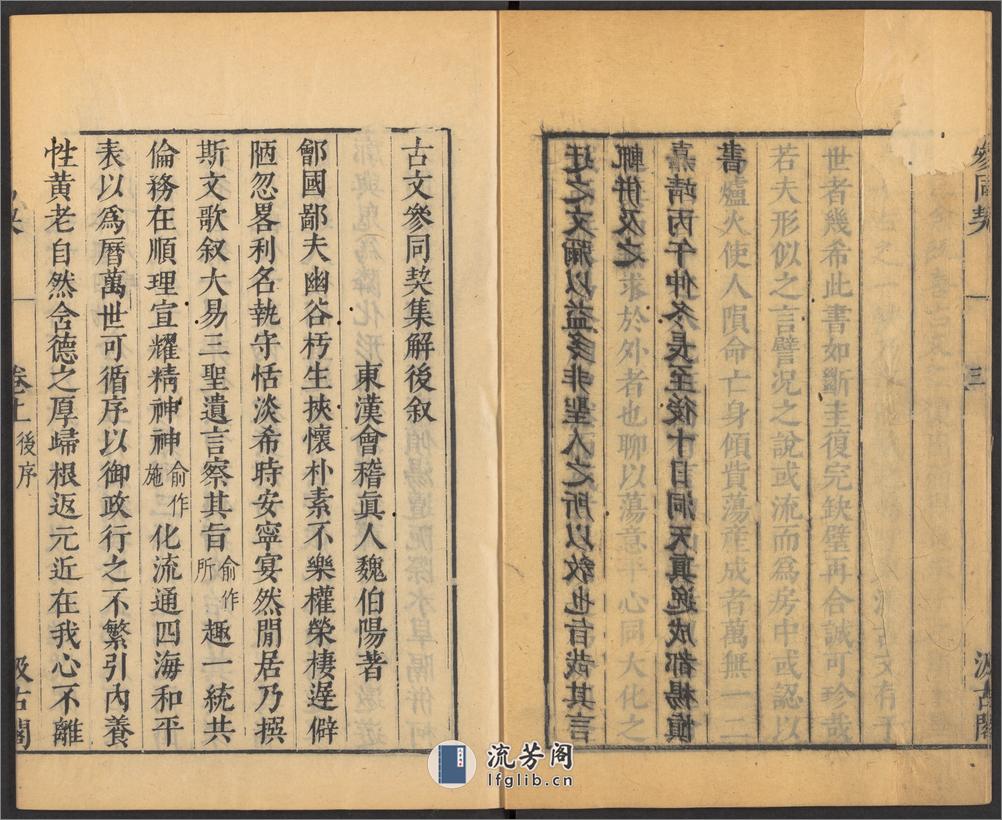 參同契
一
三
汲古閣
世者幾希此書如斷圭復完缺璧再合誠可珍哉
若夫形似之言譬況之說或流而爲房中或認以
爐火使人隕命亡身傾貲蕩產成者萬無一二
之文爾以益多非聖人之所以教也旨哉其言
輒併及之
嘉靖丙午仲冬長至後十日洞天真逸成都楊慎
書
求於外者也聊以蕩意平心同大化之
古文參同契集解後叙
東漢會稽眞人魏伯陽著
鄶國鄙夫幽谷朽生挾懷朴素不樂權榮棲遲僻
陋忽畧利名執守恬淡希時安寧宴然閒居乃撰
斯文歌叙大易三聖遺言察其旨俞作所趣一統共
倫務在順理宣耀精神神俞作施化流通四海和平
表以爲曆萬世可循序以御政行之不繁引內養
性黃老自然含德之厚歸根返元近在我心不離
一
卷上後序
汲古閣
流芳阁
lfglib.cn